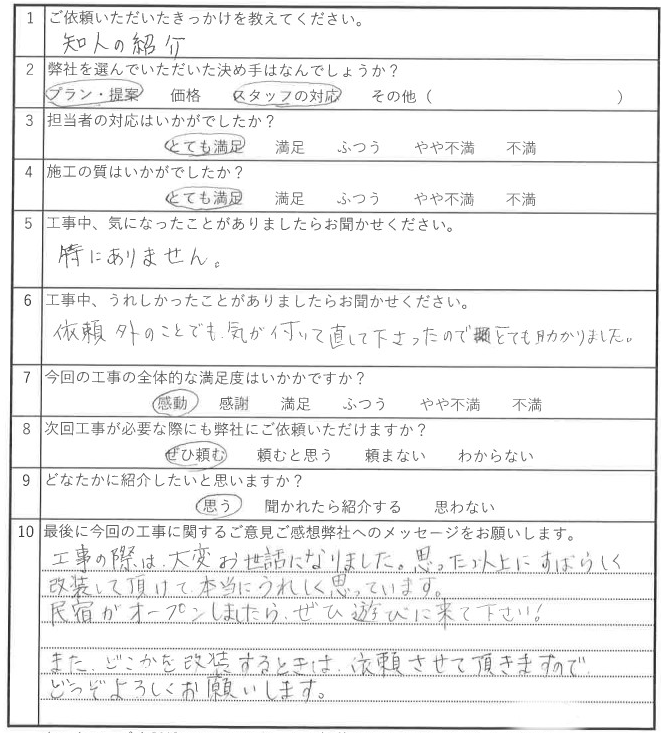 1 ご依頼いただいたきっかけを教えてください。
知人の紹介
2 弊社を選んでいただいた決め手はなんでしょうか？
プラン・提案 価格 スタッフの対応 その他（ ）
3 担当者の対応はいかがでしたか？
とても満足 満足 ふつう やや不満 不満
4 施工の質はいかがでしたか？
とても満足 満足 ふつう やや不満 不満
5 工事中、気になったことがありましたらお聞かせください。
特にありません。
6 工事中、うれしかったことがありましたらお聞かせください。
依頼外のことでも、気が付いて直して下さったので とても助かりました。
7 今回の工事の全体的な満足度はいかかですか？
感動 感謝 満足 ふつう やや不満 不満
8 次回工事が必要な際にも弊社にご依頼いただけますか？
ぜひ頼む 頼むと思う 頼まない わからない
9 どなたかに紹介したいと思いますか？
思う 聞かれたら紹介する 思わない
10 最後に今回の工事に関するご意見ご感想弊社へのメッセージをお願いします。
工事の際は、大変お世話になりました。思った以上にすばらしく
改装して頂けて、本当にうれしく思っています。
民宿がオープンしましたら、ぜひ遊びに来て下さい!
また、どこかを改装するときは、依頼させて頂きますので、
どうぞよろしくお願いします。